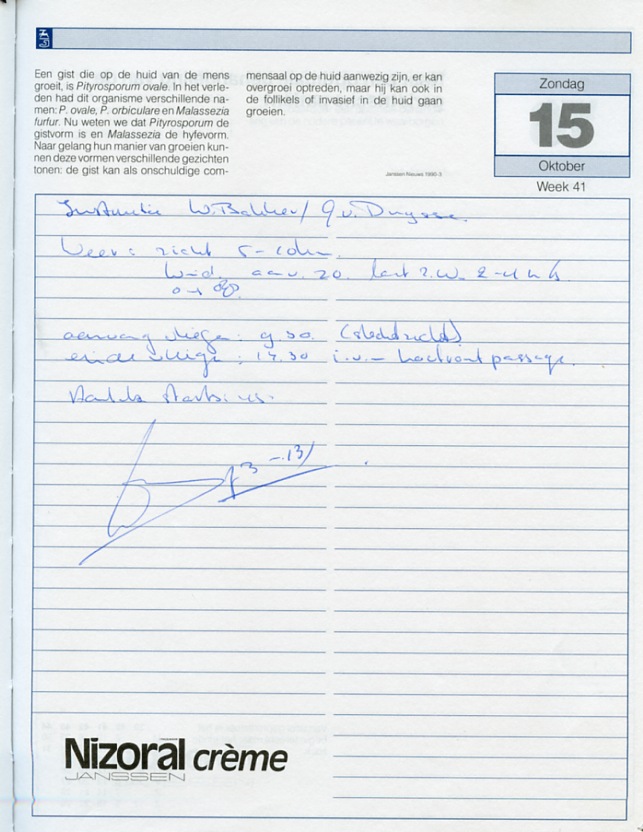 Een gist die op de huid van de mens
groeit, is Pityrosporum ovale. In het verle-
den had dit organisme verschillende na-
men: P. ovale, P. orbiculare en Malassezia
furfur. Nu weten we dat Pityrosporum de
gistvorm is en Malassezia de hyfevorm.
Naar gelang hun manier van groeien kun-
nen deze vormen verschillende gezichten
tonen: de gist kan als onschuldige com-
mensaal op de huid aanwezig zijn, er kan
overgroei optreden, maar hij kan ook in
de follikels of invasief in de huid gaan
groeien.
Janssen Nieuws 1990-3
Zondag
15
Oktober
Week 41
Instructie W. Bakker /
Weer: zicht 5-10km.
Wind
aanvang vliegen: 9.30 (slecht zicht)
einde vliegen: 17.30 i.v.m. passage.
Aantal starts:
Nizoral crème
JANSSEN